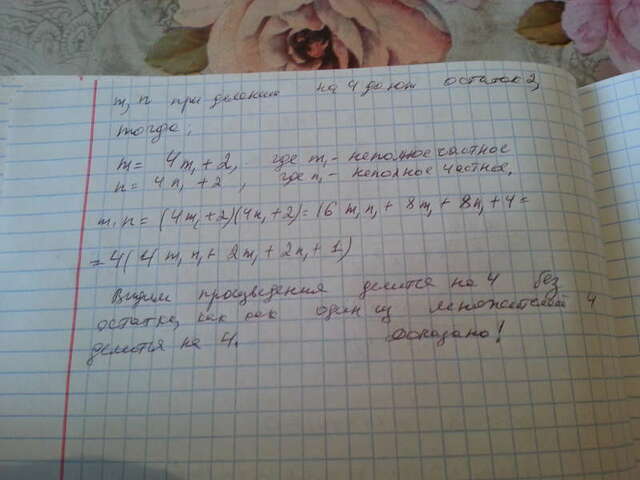 m, n при делении на 4 дают остаток 2,
тогда:
m = 4m₁ + 2, где m₁ - неполное частное
n = 4n₁ + 2, где n₁ - неполное частное,
m·n = (4m₁+2)(4n₁+2) = 16 m₁n₁ + 8m₁ + 8n₁ + 4 =
= 4(4 m₁n₁ + 2m₁ + 2n₁ + 1)
Видим произведения делится на 4 без
остатка, как как один из множителей 4
делится на 4. Доказано!